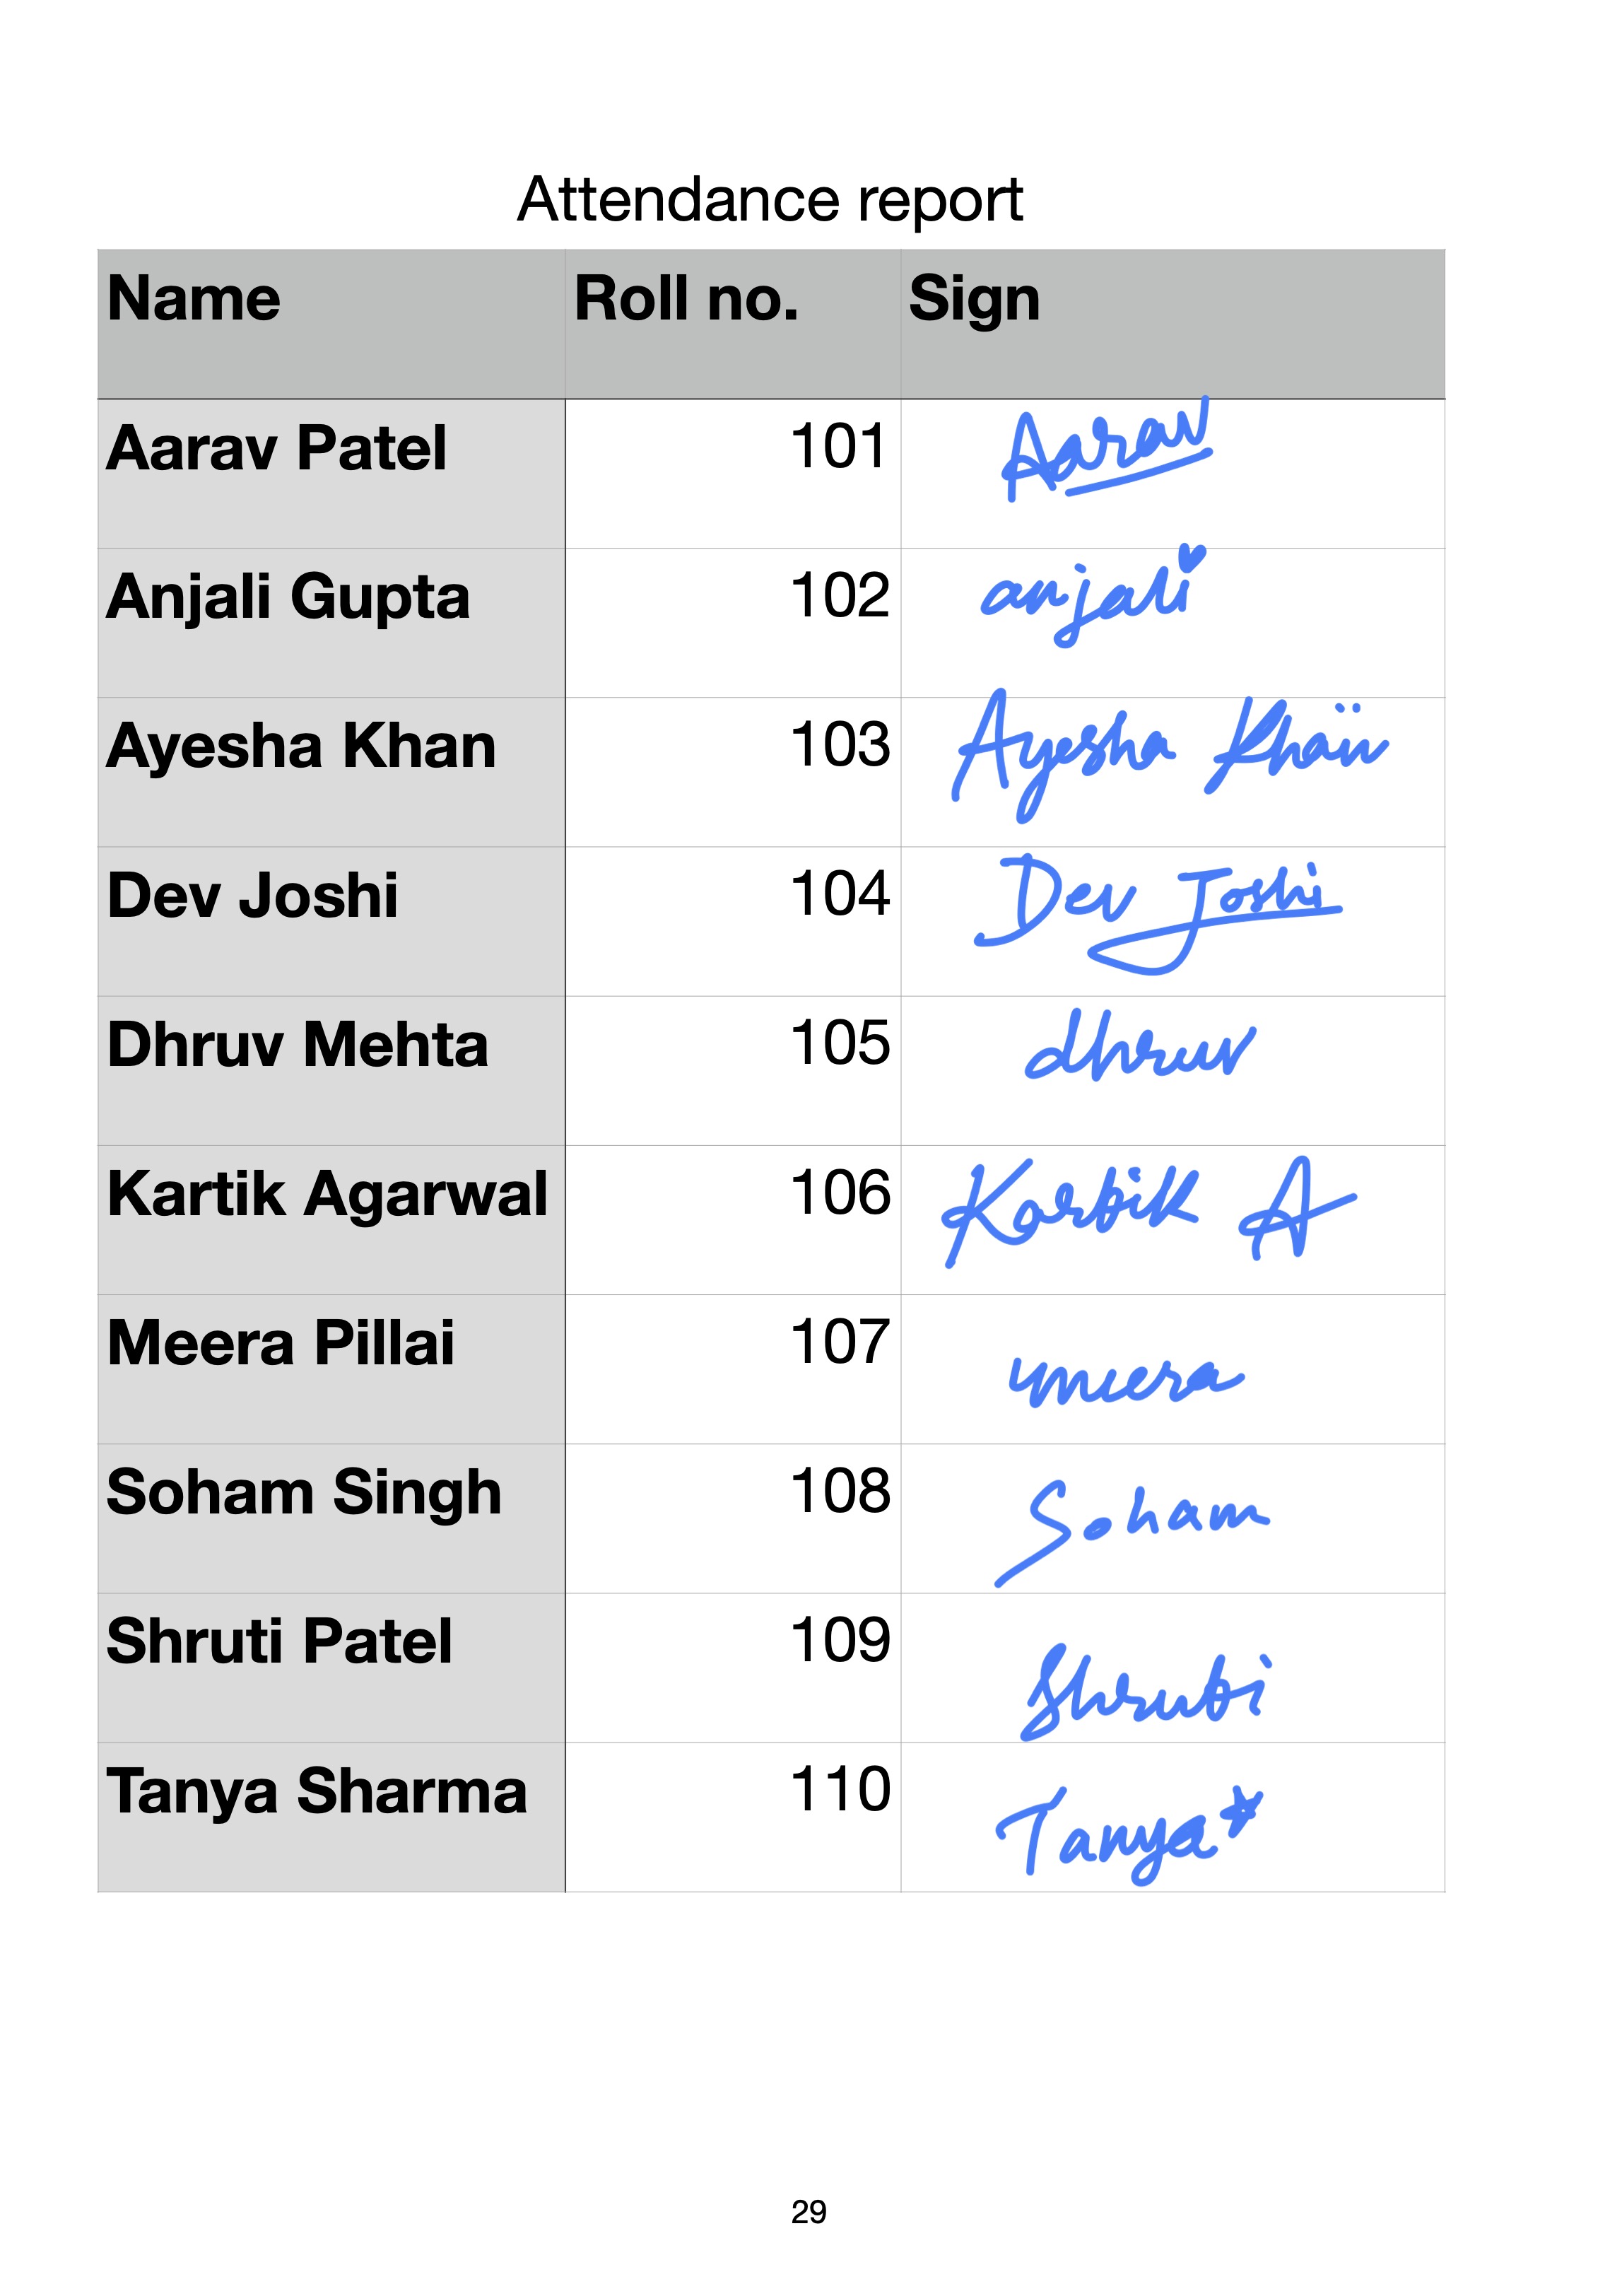 Attendance report
Name Roll no. Sign
Aarav Patel 101 Aarav
Anjali Gupta 102 anjali
Ayesha Khan 103 Ayesha Khan
Dev Joshi 104 Dev Joshi
Dhruv Mehta 105 dhruv
Kartik Agarwal 106 Kartik A
Meera Pillai 107 meera
Soham Singh 108 Soham
Shruti Patel 109 Shruti
Tanya Sharma 110 Tanya
29